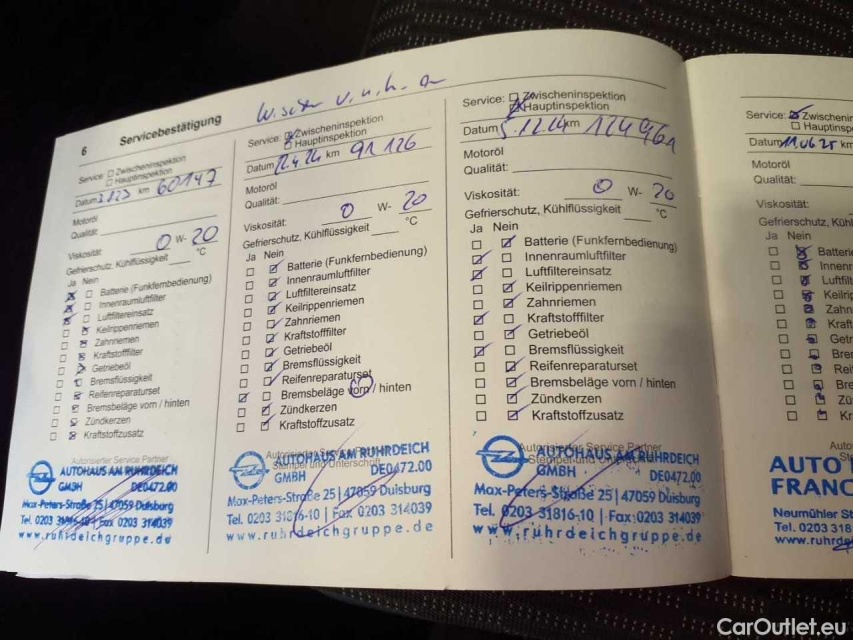 6 Servicebestätigung
Service: Zwischeninspektion
Hauptinspektion
km 60147
Motoröl
Qualität:
Viskosität: 0 W- 20
Gefrierschutz, Kühlflüssigkeit °C
Ja Nein
Batterie (Funkfernbedienung)
Innenraumfilter
Luftfiltereinsatz
Keilrippenriemen
Zahnriemen
Kraftstofffilter
Getriebeöl
Bremsflüssigkeit
Reifenreparaturset
Bremsbeläge vorn / hinten
Zündkerzen
Kraftstoffzusatz
Autorisierter Service Partner
AUTOHAUS AM RUHRDEICH
GMBH DE0472.00
Max-Peters-Straße 25 | 47059 Duisburg
Tel. 0203 31816-10 | Fax 0203 314039
www.ruhrdeichgruppe.de
Service: Zwischeninspektion
Hauptinspektion
Datum km 91126
Motoröl
Qualität:
Viskosität: 0 W- 20
Gefrierschutz, Kühlflüssigkeit °C
Ja Nein
Batterie (Funkfernbedienung)
Innenraumluftfilter
Luftfiltereinsatz
Keilrippenriemen
Zahnriemen
Kraftstofffilter
Getriebeöl
Bremsflüssigkeit
Reifenreparaturset
Bremsbeläge vorn / hinten
Zündkerzen
Kraftstoffzusatz
Autorisierter Service Partner
Stempel und Unterschrift
AUTOHAUS AM RUHRDEICH
GMBH DE0472.00
Max-Peters-Straße 25 | 47059 Duisburg
Tel. 0203 31816-10 | Fax 0203 314039
www.ruhrdeichgruppe.de
Service: Zwischeninspektion
Hauptinspektion
Datum 5.12.24 km 124961
Motoröl
Qualität:
Viskosität: 0 W- 20
Gefrierschutz, Kühlflüssigkeit °C
Ja Nein
Batterie (Funkfernbedienung)
Innenraumluftfilter
Luftfiltereinsatz
Keilrippenriemen
Zahnriemen
Kraftstofffilter
Getriebeöl
Bremsflüssigkeit
Reifenreparaturset
Bremsbeläge vorn / hinten
Zündkerzen
Kraftstoffzusatz
Autorisierter Service Partner
AUTOHAUS AM RUHRDEICH
GMBH DE0472.00
Max-Peters-Straße 25 | 47059 Duisburg
Tel. 0203 31816-10 | Fax: 0203 314039
www.ruhrdeichgruppe.de
Service: Zwischenin
Hauptinsp
Datum 11.06.25 km
Motoröl
Qualität:
Viskosität:
Gefrierschutz, Kühl
Ja Nein
Batterie
Innen
Luftfilt
Keilrip
Zahn
Kraft
Getr
Bre
Rei
Bre
Zü
Kr
Auto
AUTO
FRANC
Neumühler St
Tel. 0203 318
www.ruhrde
CarOutlet.eu